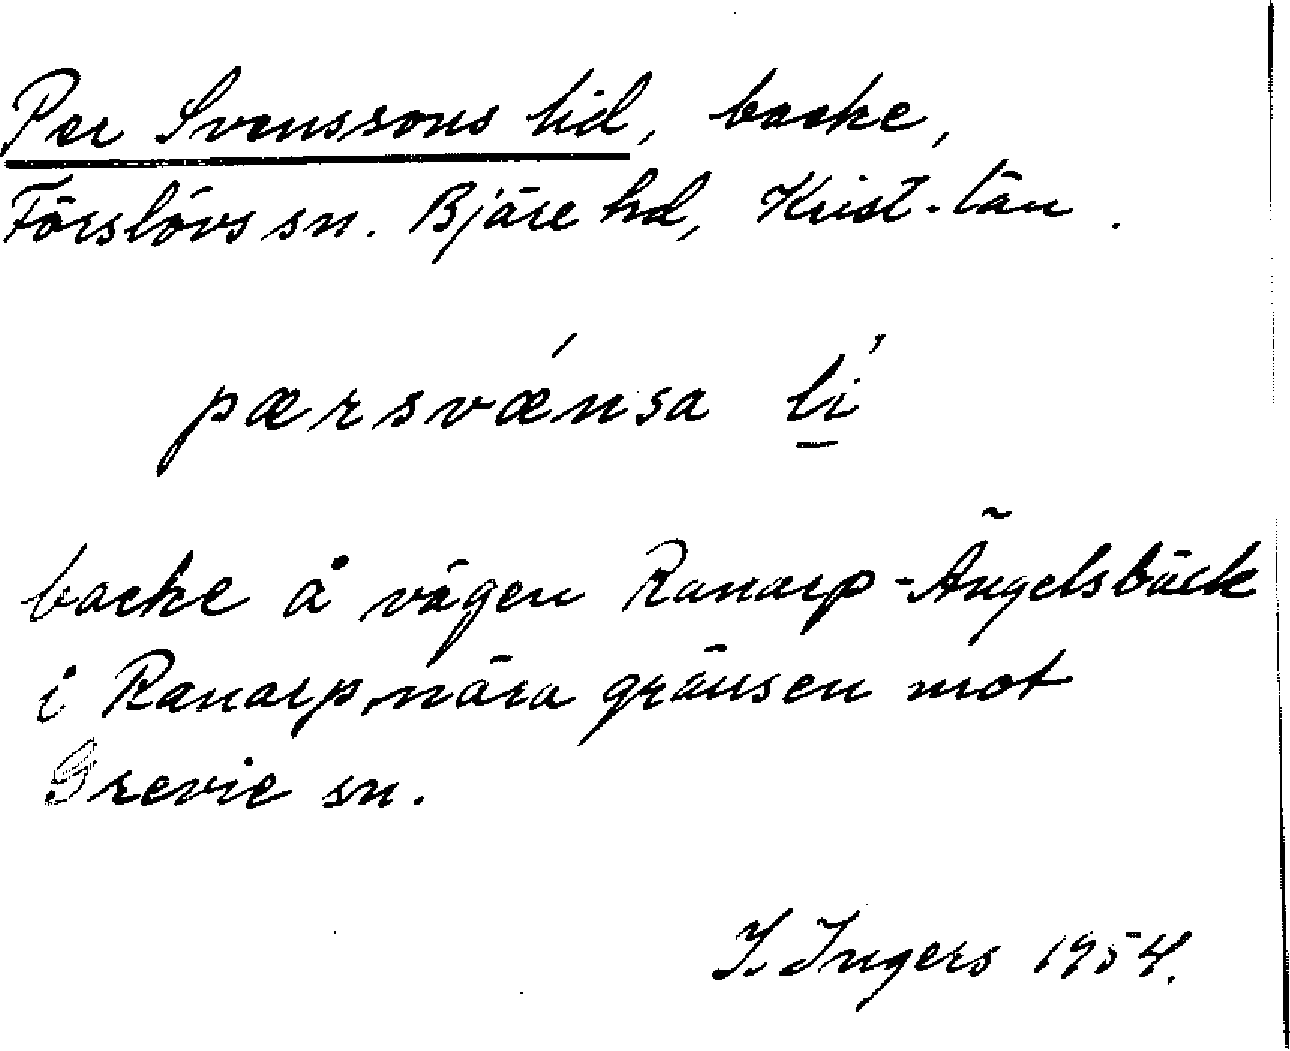 Per Svenssons lid, backe,
Förslövs sn. Bjäre hd, Krist-län.
pærsvǽnsa lí
backe å vägen Ranarp-Ängelsbäck
i Ranarp, nära gränsen mot
Grevie sn.
I. Ingers 1954.